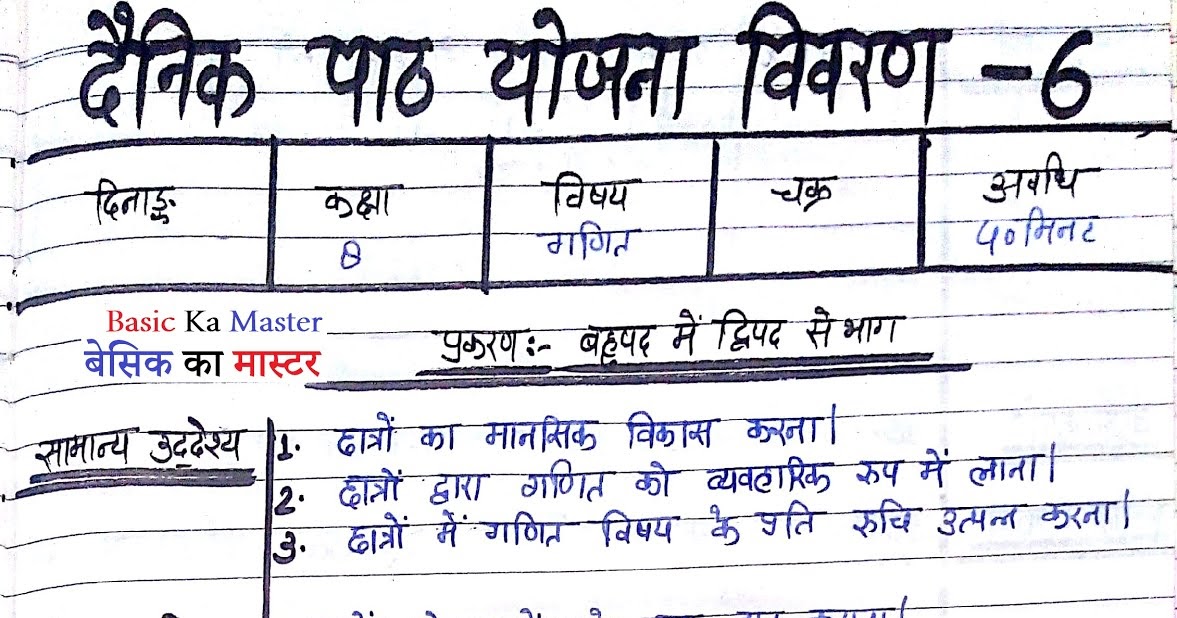 दैनिक पाठ योजना विवरण - 6
दिनाङ्क कक्षा विषय चक्र अवधि
8 गणित ५० मिनट
Basic Ka Master
बेसिक का मास्टर
प्रकरण :- बहुपद में द्विपद से भाग
सामान्य उद्देश्य 1. छात्रों का मानसिक विकास करना।
2. छात्रों द्वारा गणित को व्यवहारिक रूप में लाना।
3. छात्रों में गणित विषय के प्रति रुचि उत्पन्न करना।